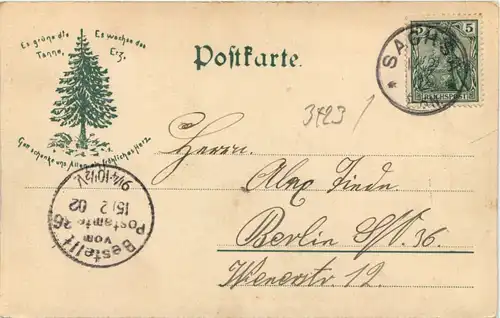 Es grüne die Tanne,
Es wachse das Erz,
Gott schenke uns Allen ein fröhliches Herz
Postkarte.
5
REICHSPOST
SACHSA
3423
Herrn
Alex
Berlin SO. 36.
Wienerstr. 12.
Bestellt
vom
Postamte 36
15/2 02
9¼-10½V.